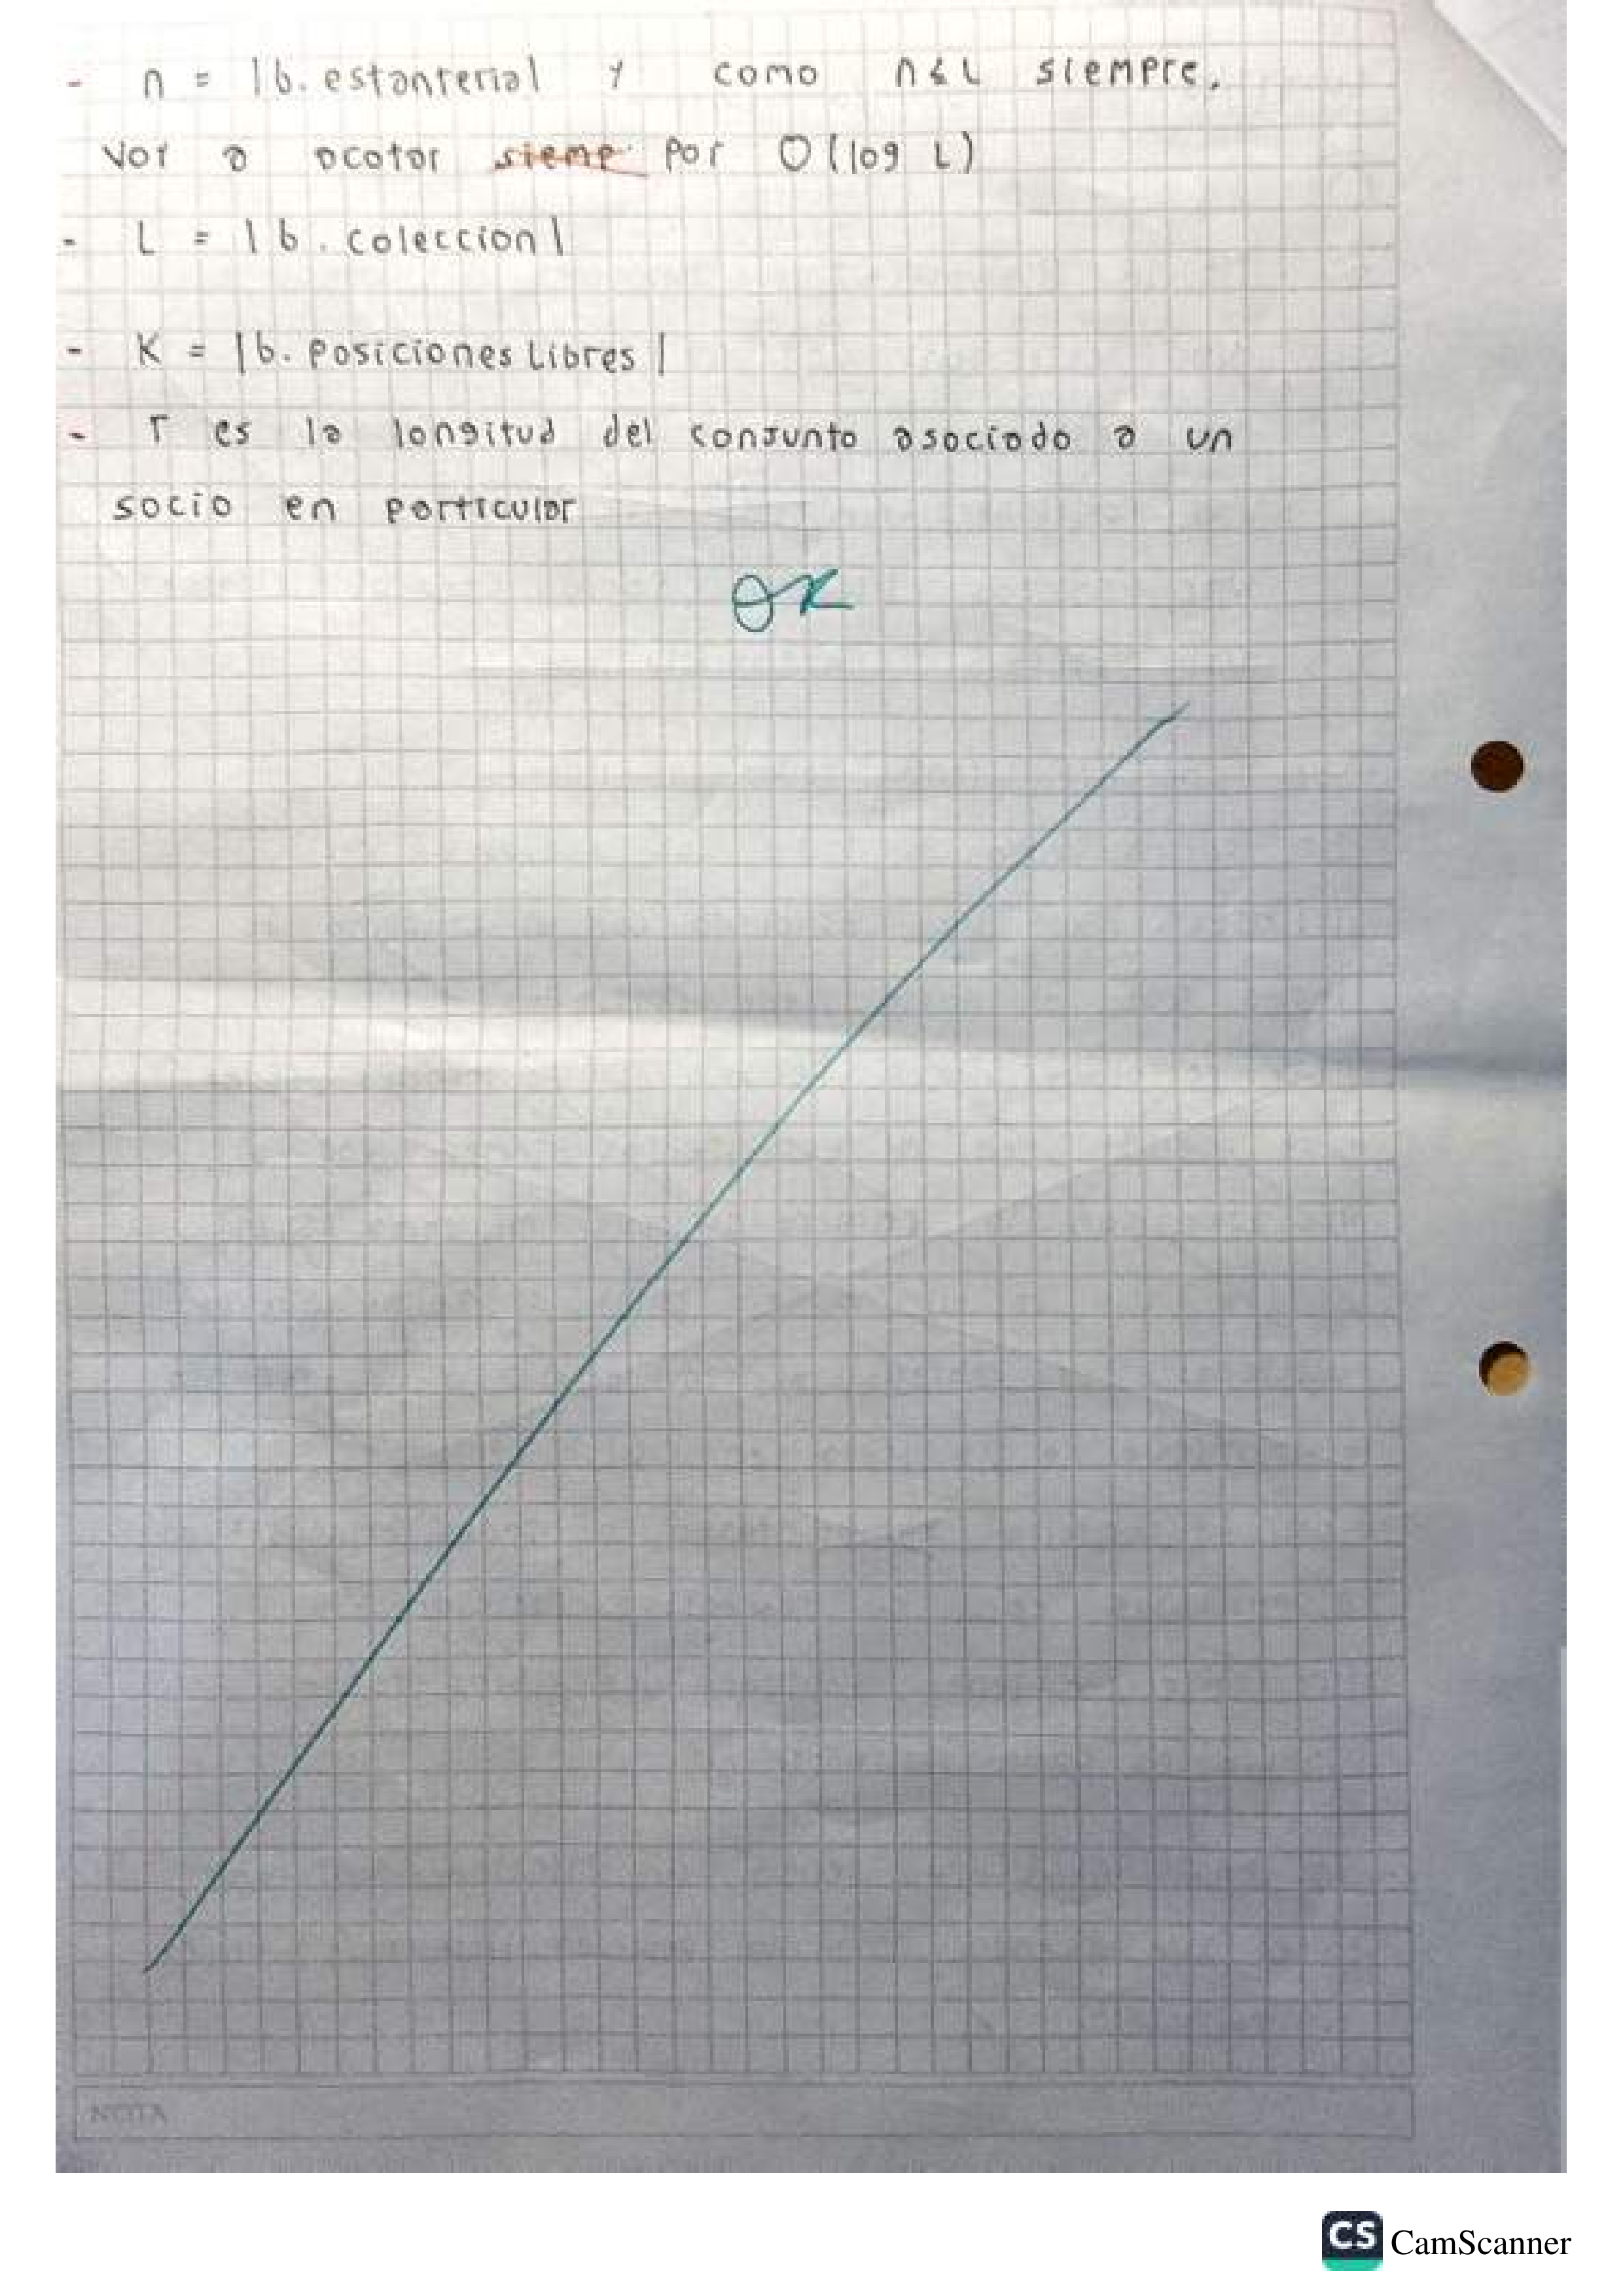 - n = |b. estanteria| y como n≤L siempre,
voy a acotar siemp por O(log L)
- L = |b. coleccion|
- K = |b. posiciones Libres|
- r es la longitud del conjunto asociado a un
socio en particular
OK
NOTA
CS CamScanner